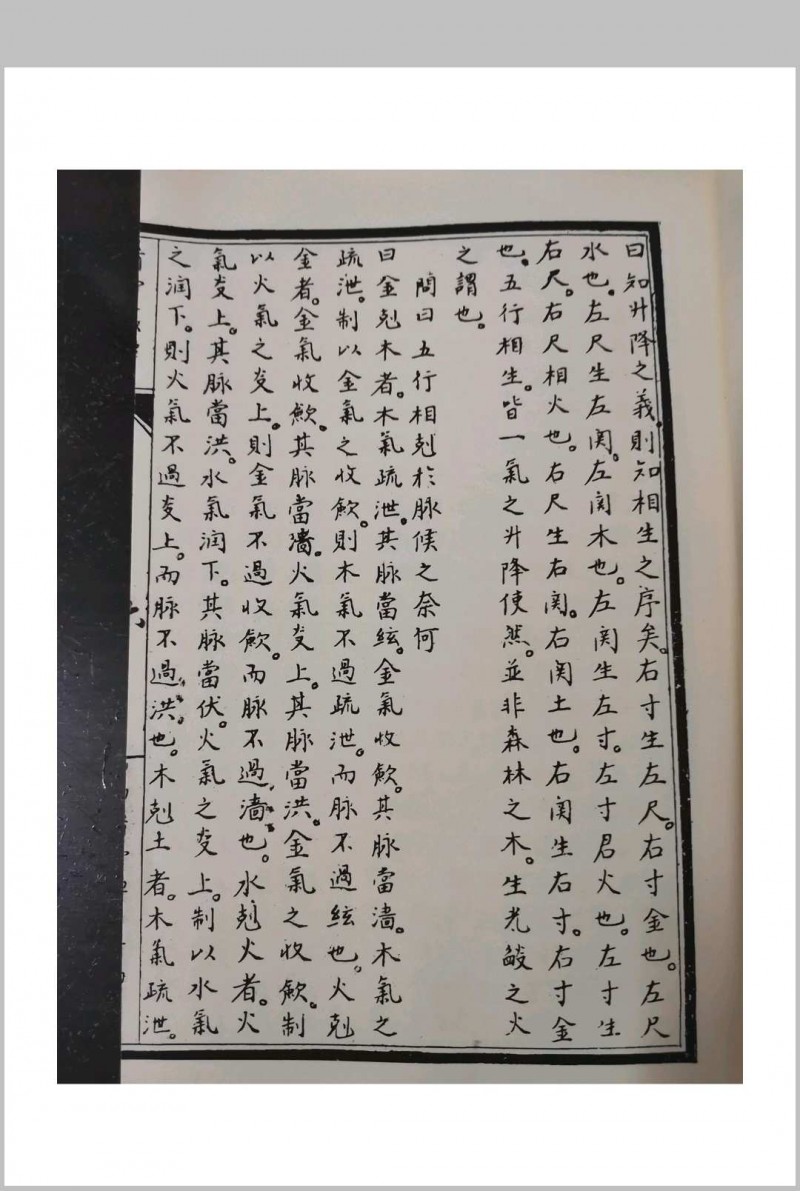 曰知升降之義。則知相生之序矣。右寸生左尺。右寸金也。左尺
水也。左尺生左関。左関木也。左関生左寸。左寸君火也。左寸生
右尺。右尺相火也。右尺生右関。右関土也。右関生右寸。右寸金
也。五行相生。皆一氣之升降使然。並非森林之木。生光燄之火
之謂也。
問曰五行相剋於脈候之奈何
曰金剋木者。木氣疏泄。其脈當絃。金氣收歛。其脈當濇。木氣之
疏泄。制以金氣之收歛。則木氣不過疏泄。而脈不過絃也。火剋
金者。金氣收歛。其脈當濇。火氣炎上。其脈當洪。金氣之收歛。制
以火氣之炎上。則金氣不過收歛。而脈不過濇也。水剋火者。火
氣炎上。其脈當洪。水氣润下。其脈當伏。火氣之炎上。制以水氣
之润下。則火氣不過炎上。而脈不過洪也。木剋土者。木氣疏泄。